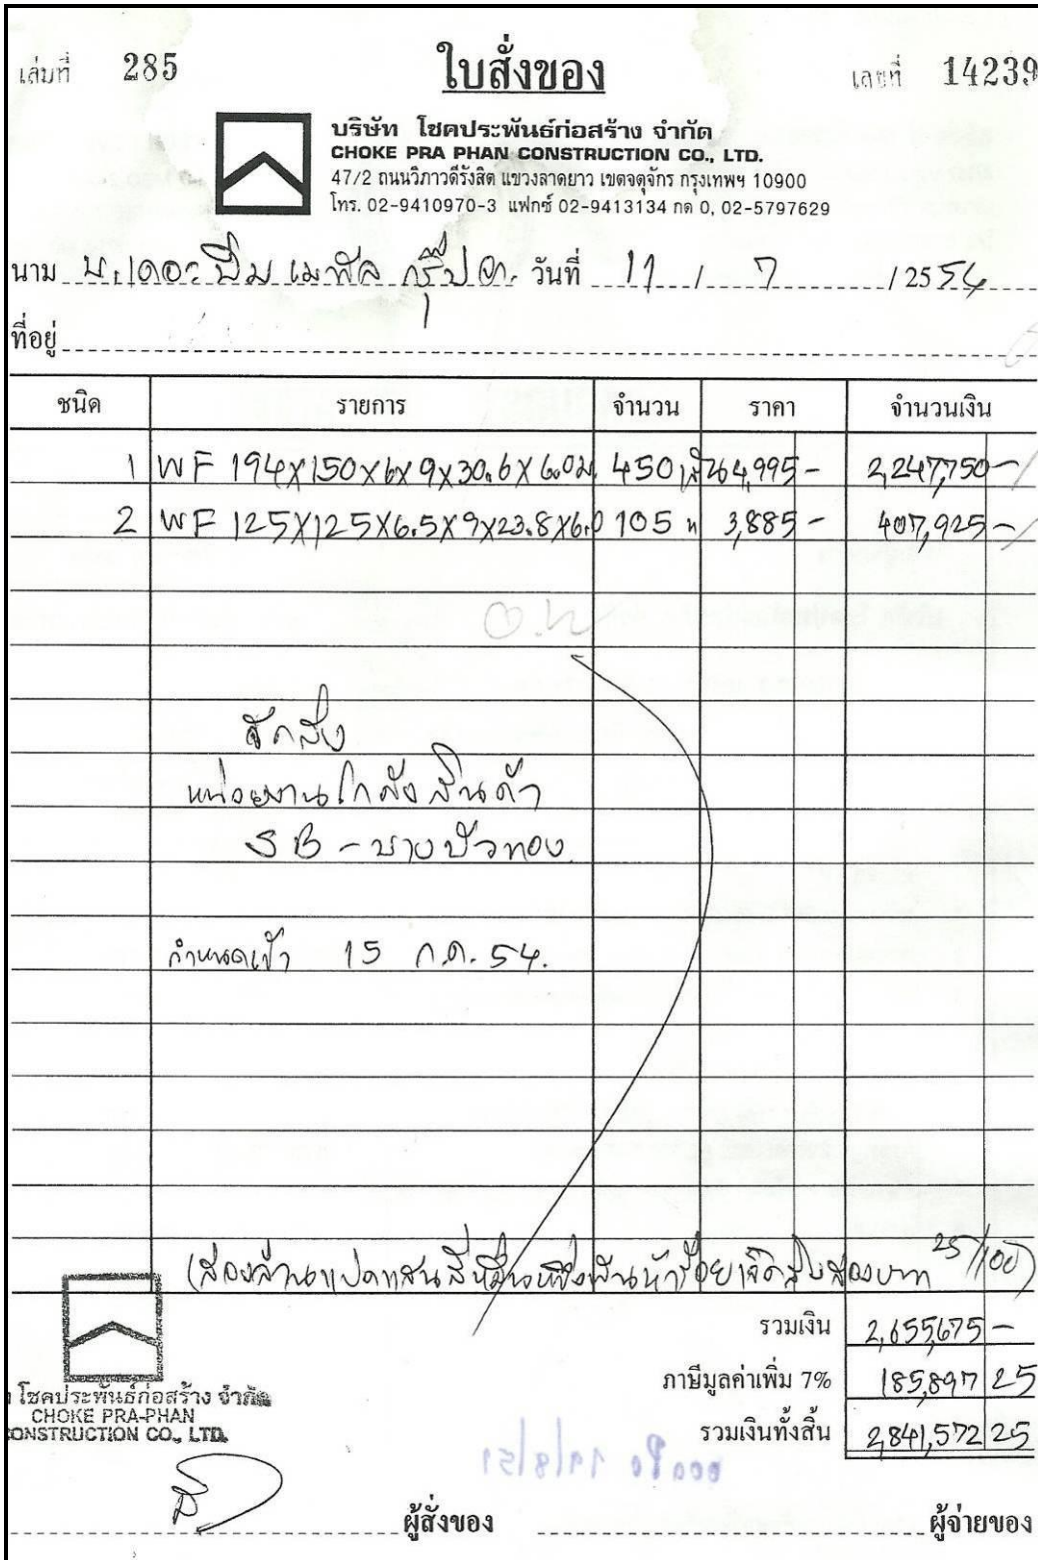 เล่มที่ 285 ใบสั่งของ เลขที่ 14239
บริษัท โชคประพันธ์ก่อสร้าง จำกัด
CHOKE PRA PHAN CONSTRUCTION CO., LTD.
47/2 ถนนวิภาวดีรังสิต แขวงลาดยาว เขตจตุจักร กรุงเทพฯ 10900
โทร. 02-9410970-3 แฟกซ์ 02-9413134 กด 0, 02-5797629
นาม บ. เดอะ ปิ่ม เมทัล กรุ๊ป จก. วันที่ 11 / 7 / 2554
ที่อยู่
ชนิด รายการ จำนวน ราคา จำนวนเงิน
1 WF 194X150X6X9X30.6X6.0ม. 450 เส้น 4,995 - 2,247,750 -
2 WF 125X125X6.5X9X23.8X6.0 105 " 3,885 - 407,925 -
จัดส่ง
หน่วยงานโกดังสินค้า
SB - บางบัวทอง
กำหนดเข้า 15 ก.ค. 54.
(สองล้านแปดแสนสี่หมื่นหนึ่งพันห้าร้อยเจ็ดสิบสองบาท 25/100)
รวมเงิน 2,655,675 -
ภาษีมูลค่าเพิ่ม 7% 185,897 25
รวมเงินทั้งสิ้น 2,841,572 25
โชคประพันธ์ก่อสร้าง จำกัด
CHOKE PRA-PHAN
CONSTRUCTION CO., LTD.
ผู้สั่งของ ผู้จ่ายของ